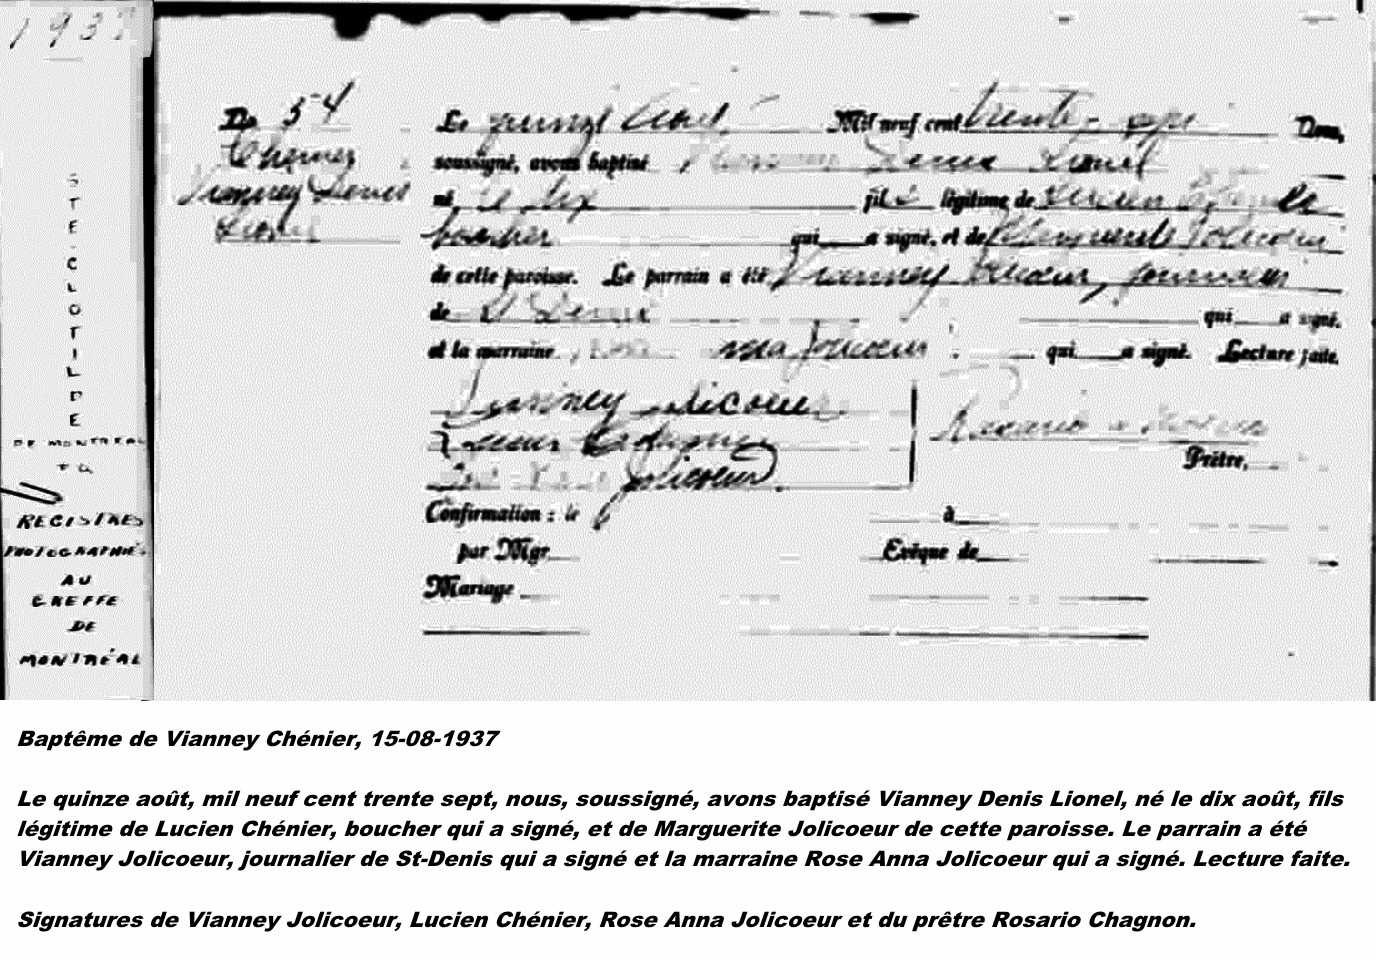 1937
STE-CLOTILDE
DE MONTREAL
REGISTRES
PHOTOGRAPHIÉS
AU
GREFFE
DE
MONTRÉAL
No 54
Chenier
Vianney Denis
Lionel
Le quinze août Mil neuf cent trente-sept Nous,
soussigné, avons baptisé Vianney Denis Lionel
né le dix fils légitime de Lucien
boucher qui a signé, et de Marguerite Jolicoeur
de cette paroisse. Le parrain a été Vianney Jolicoeur, journalier
de St Denis qui a signé.
et la marraine Jolicoeur qui a signé. Lecture faite.
Vianney Jolicoeur
Jolicoeur
Rosario
Prêtre,
Confirmation : le à
par Mgr Evêque de
Mariage
Baptême de Vianney Chénier, 15-08-1937
Le quinze août, mil neuf cent trente sept, nous, soussigné, avons baptisé Vianney Denis Lionel, né le dix août, fils
légitime de Lucien Chénier, boucher qui a signé, et de Marguerite Jolicoeur de cette paroisse. Le parrain a été
Vianney Jolicoeur, journalier de St-Denis qui a signé et la marraine Rose Anna Jolicoeur qui a signé. Lecture faite.
Signatures de Vianney Jolicoeur, Lucien Chénier, Rose Anna Jolicoeur et du prêtre Rosario Chagnon.